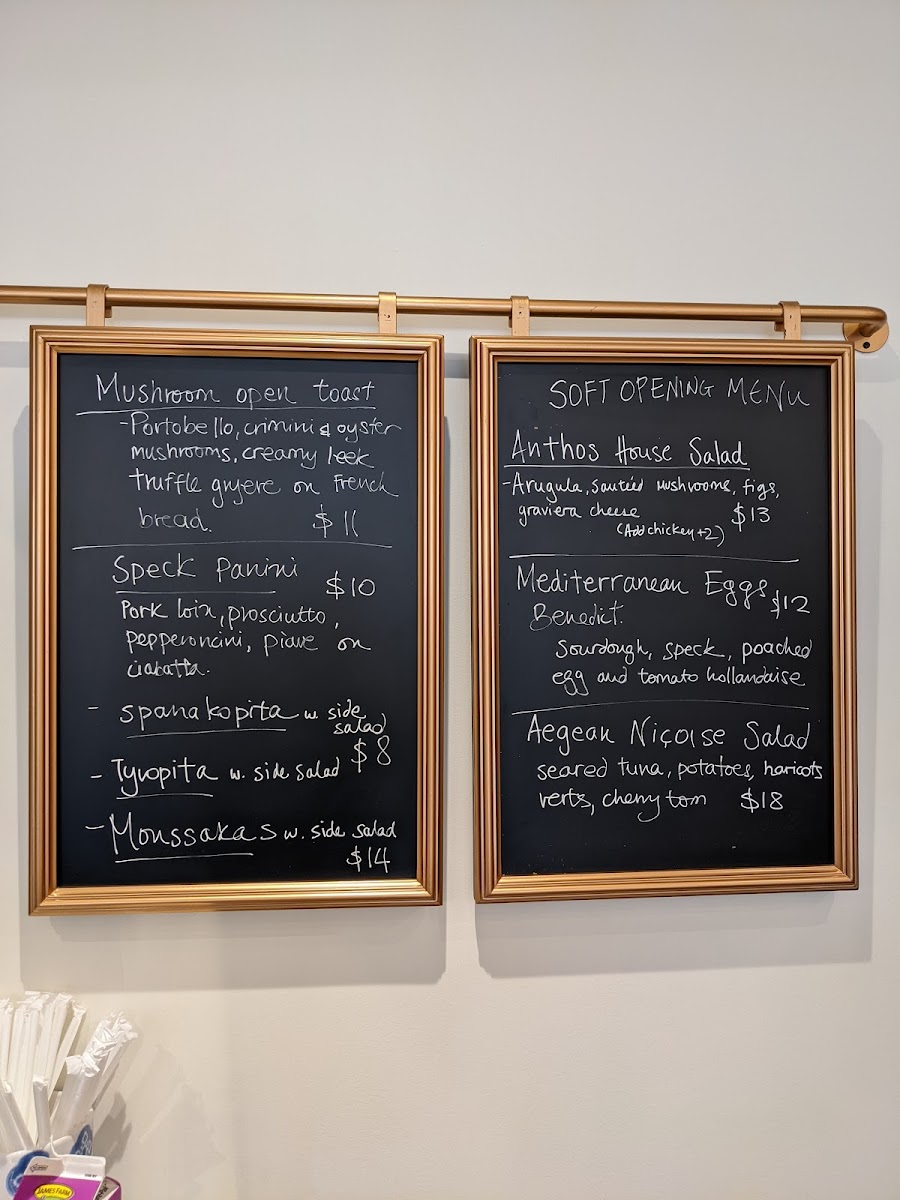 Mushroom open toast
- Portobello, crimini & oyster
mushrooms, creamy leek
truffle gruyere on French
bread. $11
Speck Panini $10
Pork loin, prosciutto,
pepperoncini, piave on
ciabatta.
- Spanakopita w. side
salad
$8
- Tyropita w. side salad
- Moussakas w. side salad
$14
SOFT OPENING MENU
Anthos House Salad
- Arugula, sautéed mushrooms, figs,
graviera cheese $13
(Add chicken +2)
Mediterranean Eggs $12
Benedict.
Sourdough, speck, poached
egg and tomato hollandaise
Aegean Niçoise Salad
seared tuna, potatoes, haricots
verts, cherry tom $18
JAMES FARM